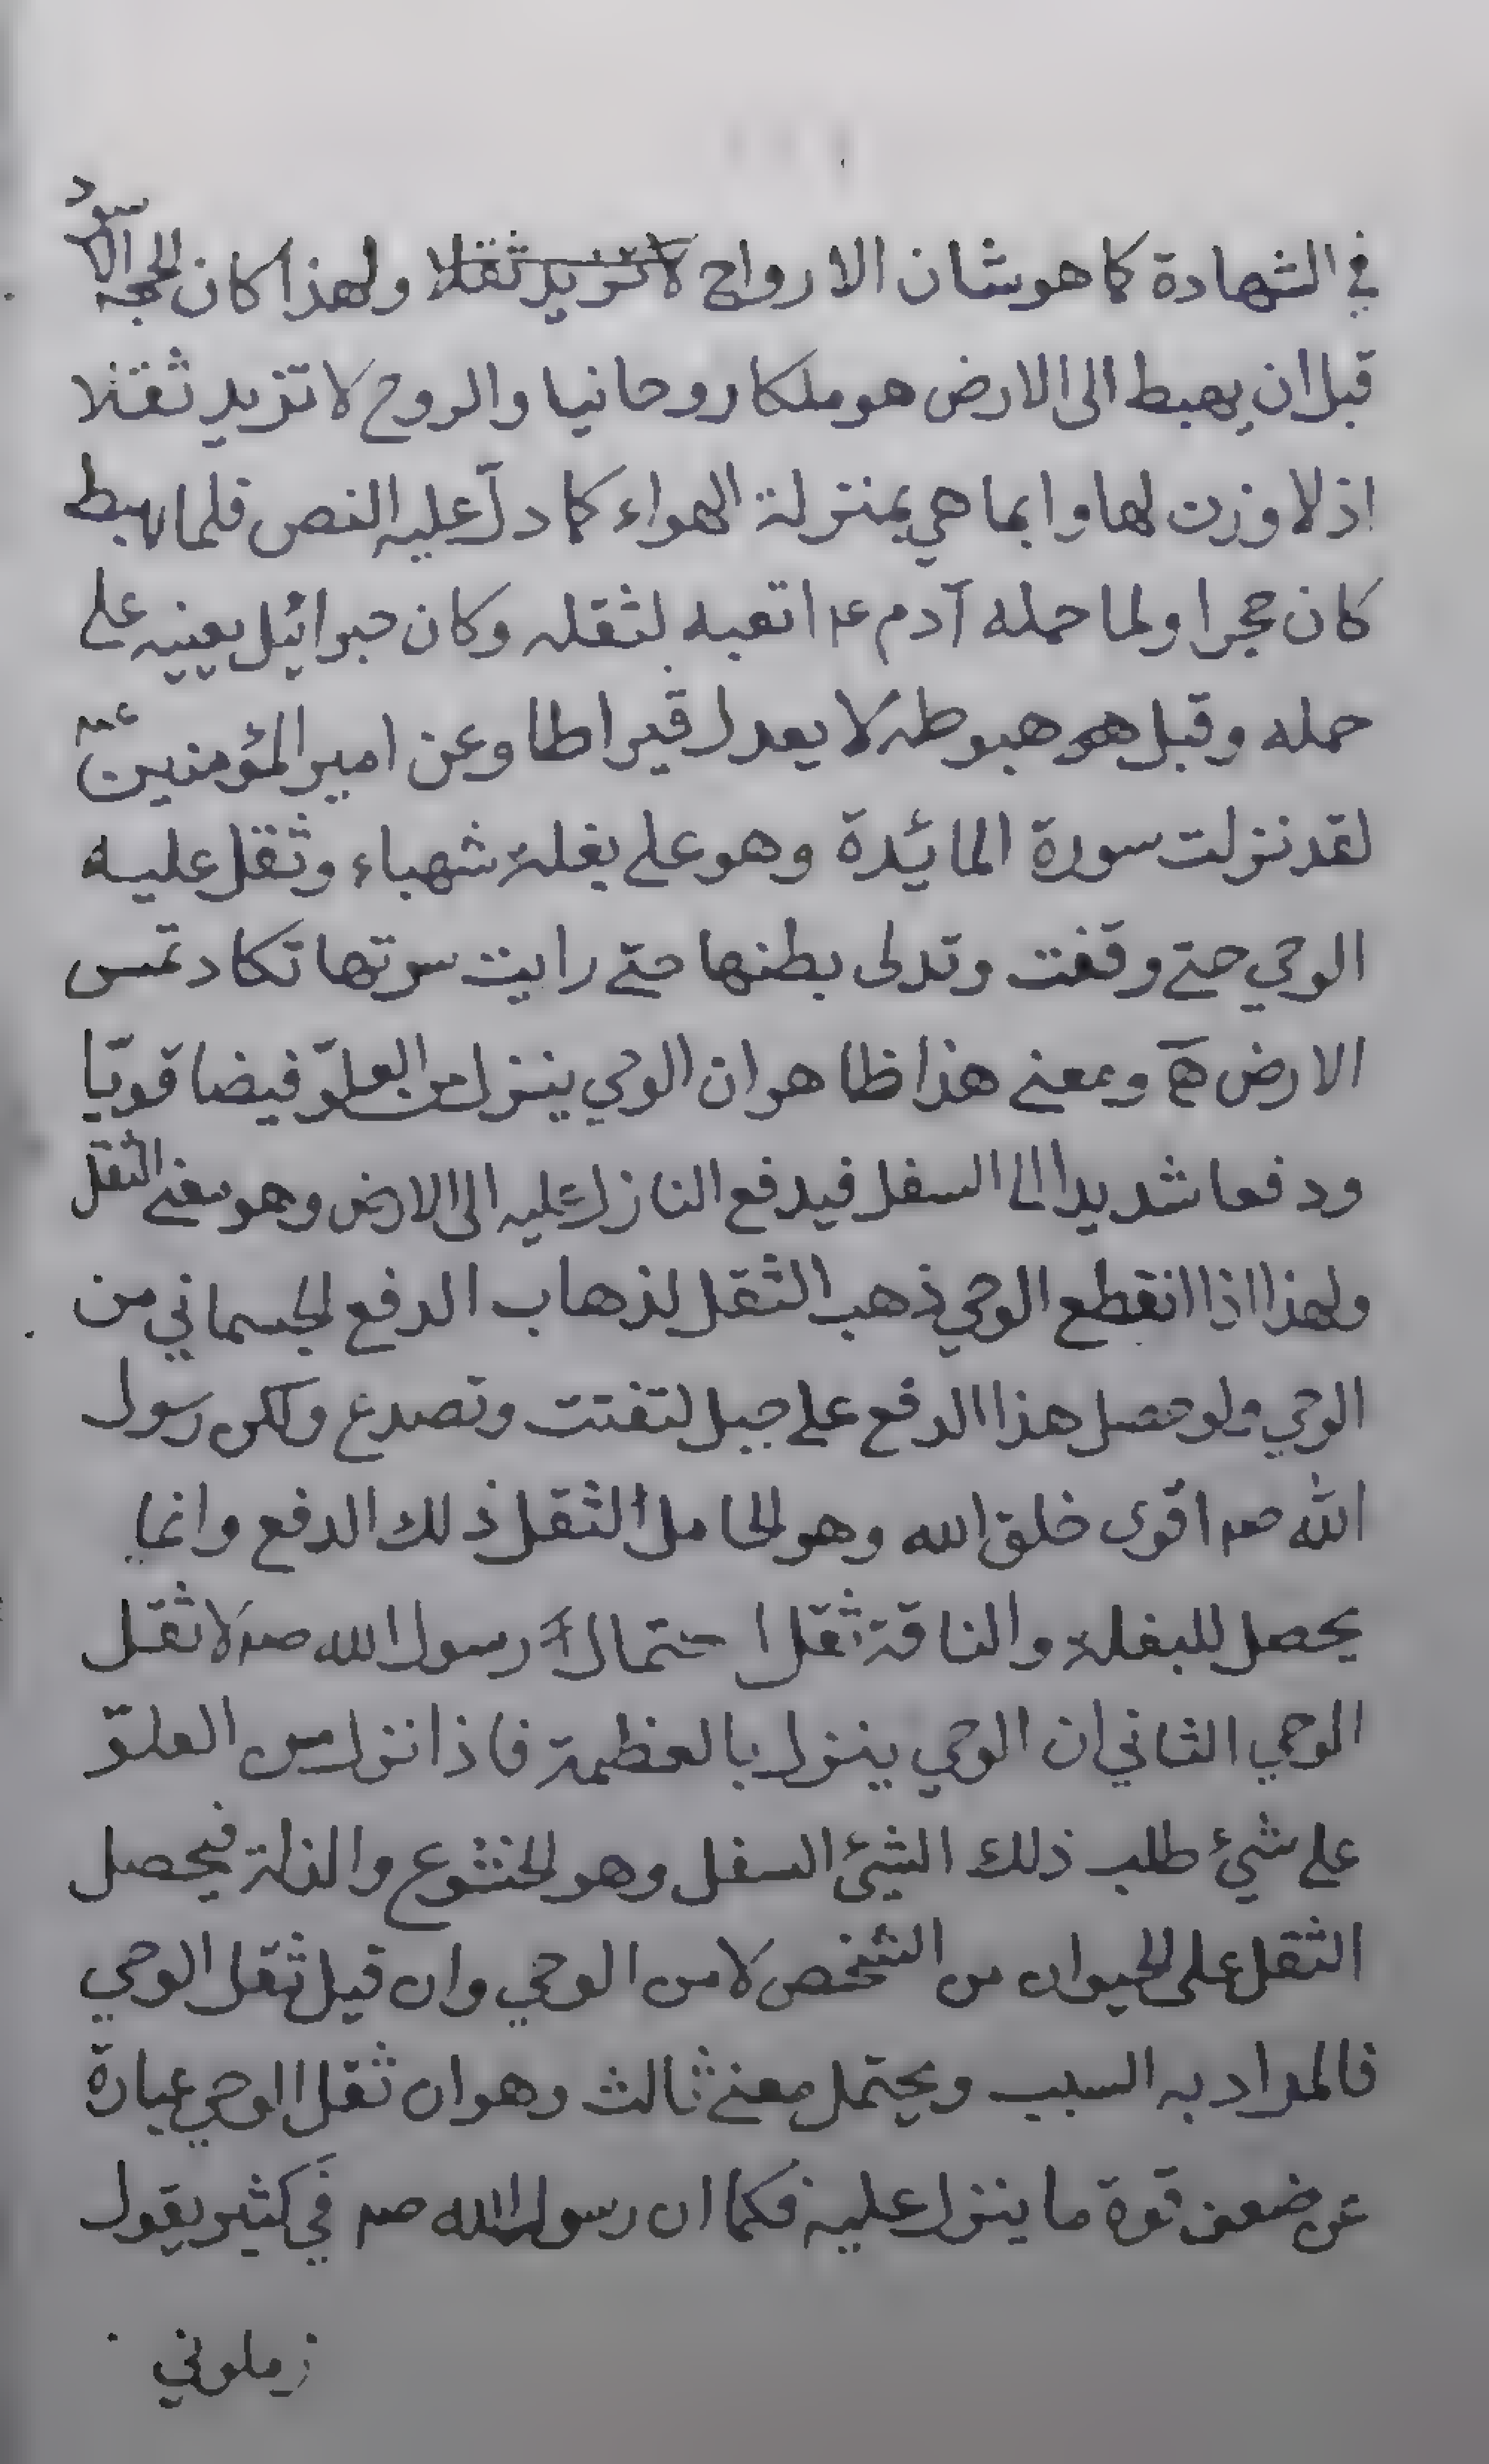 في الشهادة كما هو شان الارواح لا تزيد ثقلا ولهذا كان الحجر الاسود
قبل ان يهبط الى الارض هو ملكا روحانيا والروح لا تزيد ثقلا
اذ لا وزن لها وانما هي بمنزلة الهواء كما دلّ عليه النص فلما هبط
كان حجرا ولما حمله آدم ع اتعبه لثقله وكان جبرائيل يعينه على
حمله وقبل هو هبوطه لا يعدل قيراطا وعن امير المؤمنين ع
لقد نزلت سورة المائدة وهو على بغلة شهباء وثقل عليه
الوحي حتى وقفت وتدلى بطنها حتى رايت سرتها تكاد تمس
الارض هـ ومعنى هذا ظاهر ان الوحي ينزل من العلوّ فيضا قويّا
ودفعا شديدا الى السفل فيدفع النازل عليه الى الارض وهو معنى الثقل
ولهذا اذا انقطع الوحي ذهب الثقل لذهاب الدفع الجسماني من
الوحي ولو حصل هذا الدفع على جبل لتفتت وتصدع ولكن رسول
الله صم اقوى خلق الله وهو الحامل الثقل ذلك الدفع وانما
يحصل للبغلة والناقة ثقل احتمال رسول الله صم لا ثقل
الوحي الثاني ان الوحي ينزل بالعظمة فاذا نزل من العلوّ
على شيء طلب ذلك الشيئ السفل وهو الخشوع والذلة فيحصل
الثقل على الحيوان من الشخص لا من الوحي وان قيل ثقل الوحي
فالمراد به السبب ويحتمل معنى ثالث وهو ان ثقل الوحي عبارة
عن ضعف قوة ما ينزل عليه فكما ان رسول الله صم في كثير يقول
زملوني